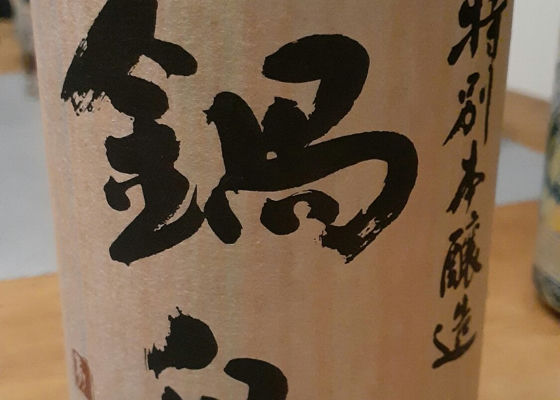 特別本醸造
鍋